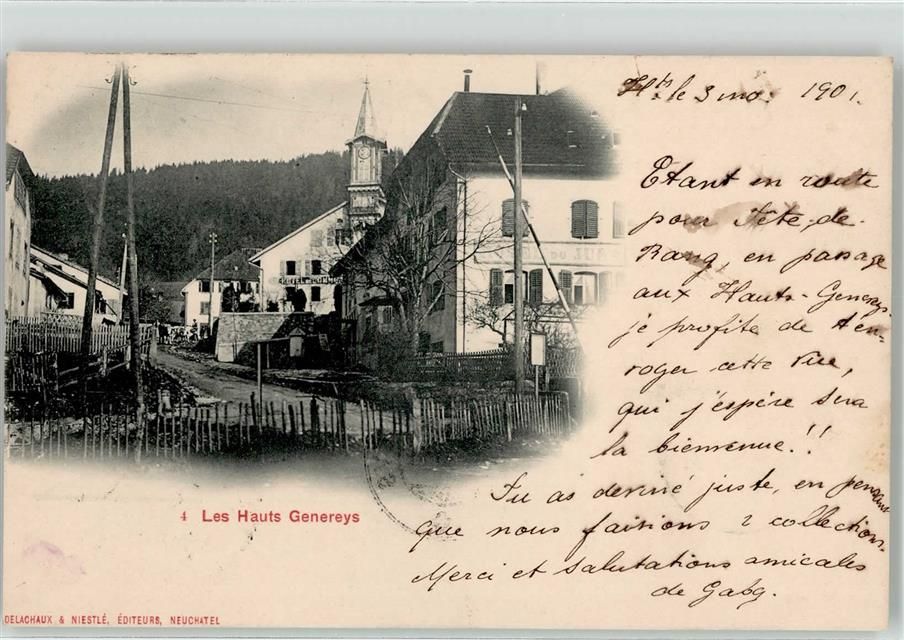 Hts. le 3 mai 1901.
Étant en route
pour Tête-de-
Rang, en passage
aux Hauts-Genereys
je profite de t'en-
voyer cette vue,
qui j'espère sera
la bienvenue!!
Tu as deviné juste, en pensant
que nous faisions 2 collection.
Merci et salutations amicales
de Gabg.
HOTEL
DU JURA
4 Les Hauts Genereys
DELACHAUX & NIESTLÉ, ÉDITEURS, NEUCHATEL